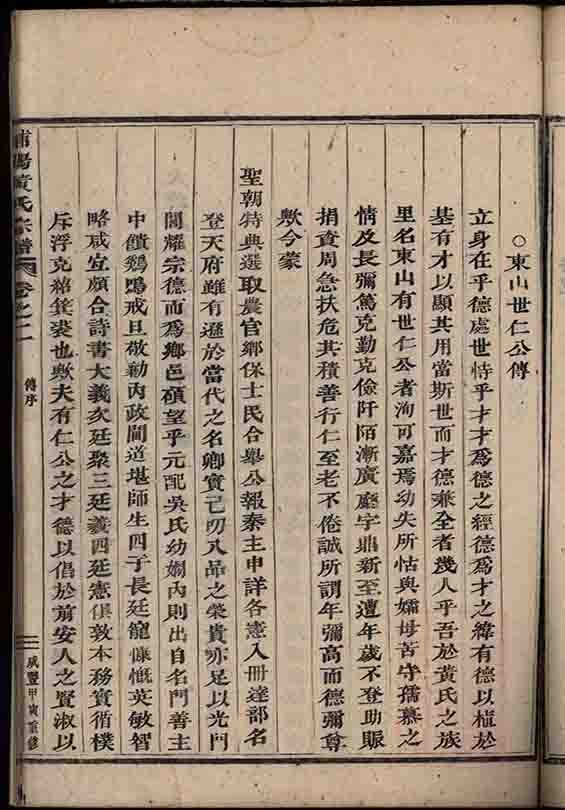 ○東山世仁公傳
立身在乎德處世恃乎才才爲德之經德爲才之緯有德以植於
基有才以顯其用當斯世而才德兼全者幾人乎吾於黃氏之族
里名東山有世仁公者洵可嘉焉幼失所怙與孀母苦守孺慕之
情及長彌篤克勤克儉阡陌漸廣廳宇鼎新至遭年歲不登助賑
捐資周急扶危其積善行仁至老不倦誠所謂年彌高而德彌尊
歟今蒙
聖朝特典選取農官鄉保士民合舉公報秦主申詳各憲入冊達部名
登天府雖有遜於當代之名卿實已叨八品之榮貴亦足以光門
閭耀宗德而爲鄉邑碩望乎元配吳氏幼嫻內則出自名門善主
中饋鷄鳴戒旦敬勷內政閫道堪師生四子長廷寵慷慨英敏智
略咸宜頗合詩書大義次廷聚三廷義四廷憲俱敦本務實循樸
斥浮克紹箕裘也歟夫有仁公之才德以倡於前安人之賢淑以
浦陽黃氏宗譜 卷之二 傳序 二 咸豐甲寅重修